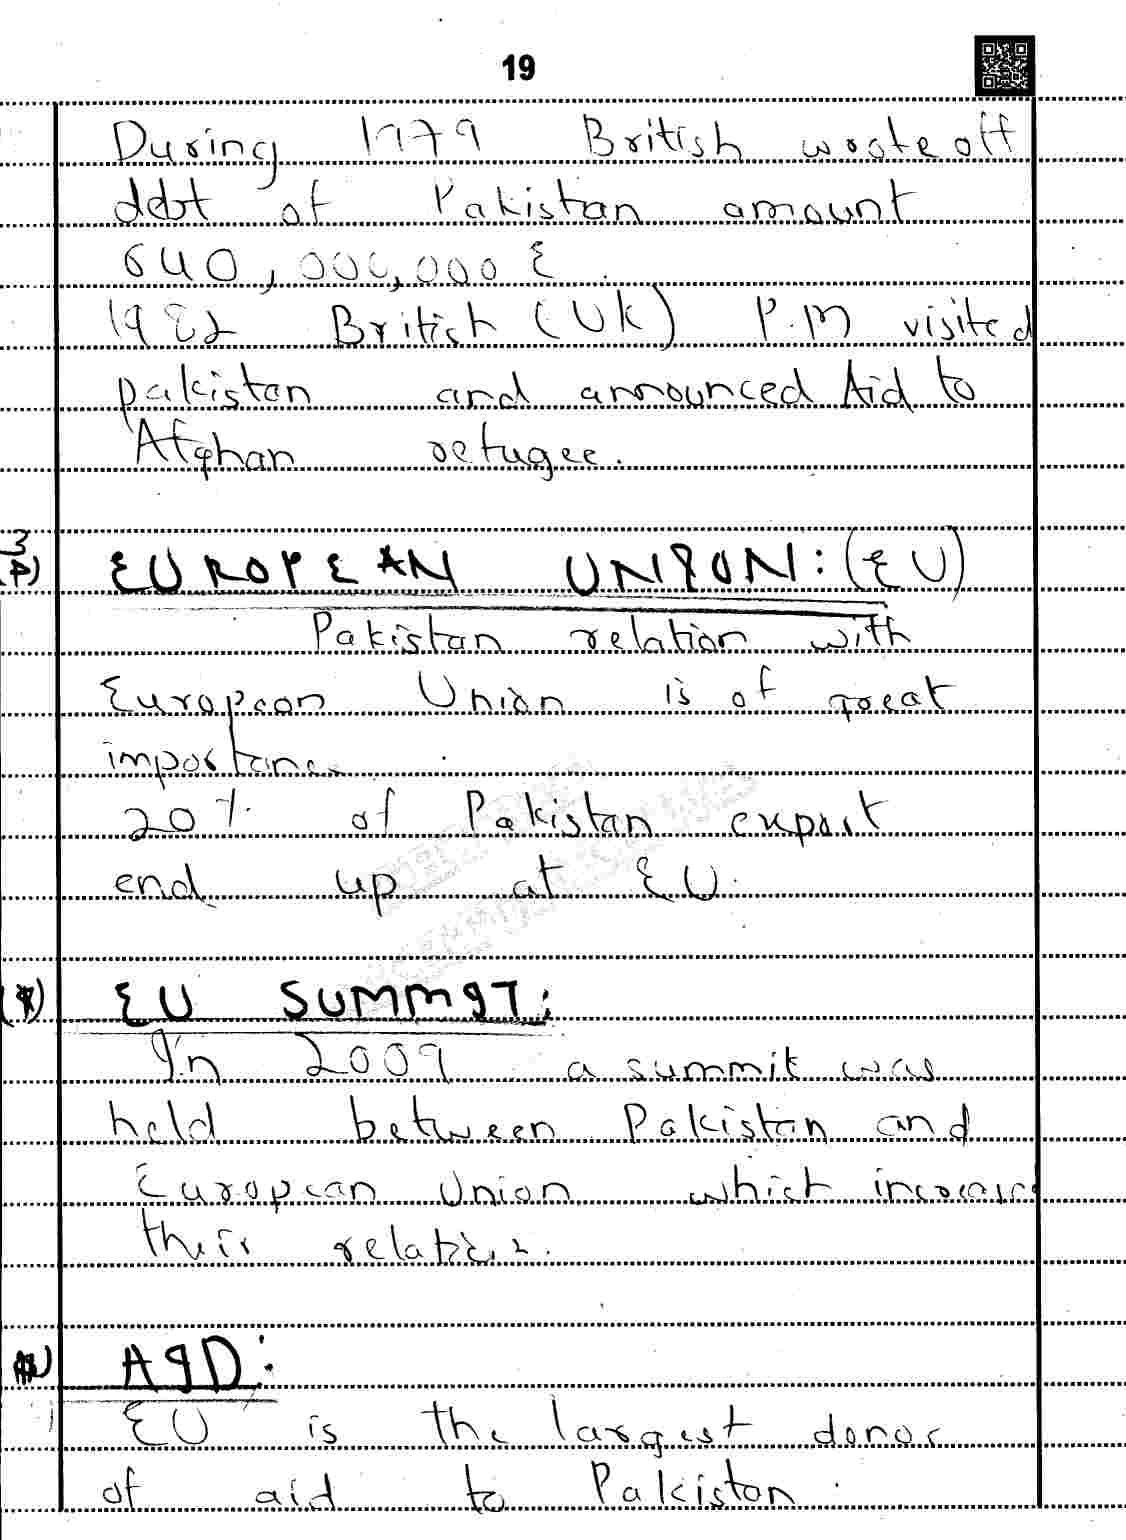 19
During 1979 British wrote off
debt of Pakistan amount
640,000,000 £.
1982 British (UK) P.M visited
pakistan and announced Aid to
Afghan refugee.
EUROPEAN UNION: (EU)
Pakistan relation with
European Union is of great
importance
20% of Pakistan export
end up at EU.
EU SUMMIT:
In 2009 a summit was
held between Pakistan and
European Union which increase
their relations.
AID:
EU is the largest donor
of aid to Pakistan.